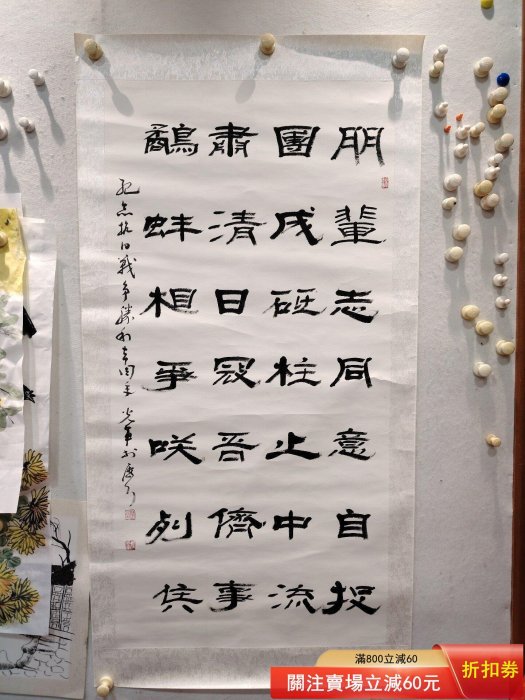 朋輩志同意自投
團成砥柱止中流
肅清日寇吾儕事
鷸蚌相爭咲列侯
紀念抗日戰爭勝利
滿800立減60
關注賣場立減60元
折扣券